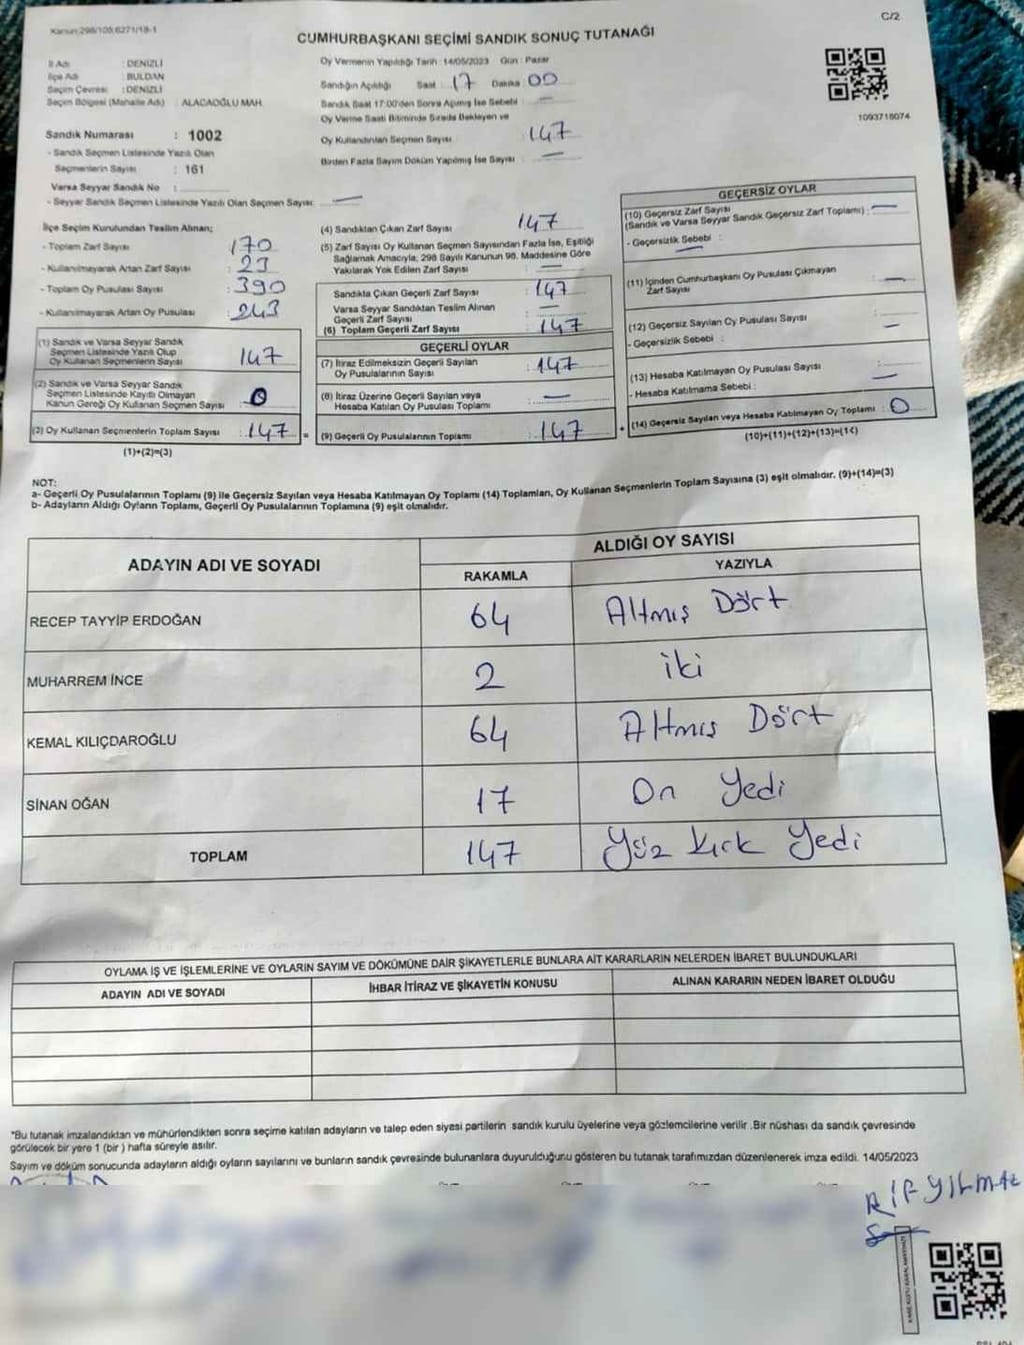 Kanun:298/105,6271/18-1
C/2
CUMHURBAŞKANI SEÇİMİ SANDIK SONUÇ TUTANAĞI
İl Adı : DENİZLİ
İlçe Adı : BULDAN
Seçim Çevresi : DENİZLİ
Seçim Bölgesi (Mahalle Adı) : ALACAOĞLU MAH.
Oy Vermenin Yapıldığı Tarih : 14/05/2023 Gün : Pazar
Sandığın Açıldığı Saat : 17 Dakika : 00
Sandık Saat 17:00'den Sonra Açılmış İse Sebebi : —
Oy Verme Saati Bitiminde Sırada Bekleyen ve
Oy Kullandırılan Seçmen Sayısı : 147
Birden Fazla Sayım Döküm Yapılmış İse Sayısı : —
1093718074
Sandık Numarası : 1002
- Sandık Seçmen Listesinde Yazılı Olan
Seçmenlerin Sayısı : 161
Varsa Seyyar Sandık No :
- Seyyar Sandık Seçmen Listesinde Yazılı Olan Seçmen Sayısı: —
İlçe Seçim Kurulundan Teslim Alınan;
- Toplam Zarf Sayısı : 170
- Kullanılmayarak Artan Zarf Sayısı : 23
- Toplam Oy Pusulası Sayısı : 390
- Kullanılmayarak Artan Oy Pusulası : 243
(1) Sandık ve Varsa Seyyar Sandık
Seçmen Listesinde Yazılı Olup
Oy Kullanan Seçmenlerin Sayısı : 147
(2) Sandık ve Varsa Seyyar Sandık
Seçmen Listesinde Kayıtlı Olmayan
Kanun Gereği Oy Kullanan Seçmen Sayısı : 0
(3) Oy Kullanan Seçmenlerin Toplam Sayısı : 147
(1)+(2)=(3)
(4) Sandıktan Çıkan Zarf Sayısı : 147
(5) Zarf Sayısı Oy Kullanan Seçmen Sayısından Fazla İse, Eşitliği
Sağlamak Amacıyla; 298 Sayılı Kanunun 98. Maddesine Göre
Yakılarak Yok Edilen Zarf Sayısı : —
Sandıkta Çıkan Geçerli Zarf Sayısı : 147
Varsa Seyyar Sandıktan Teslim Alınan
Geçerli Zarf Sayısı : —
(6) Toplam Geçerli Zarf Sayısı : 147
GEÇERLİ OYLAR
(7) İtiraz Edilmeksizin Geçerli Sayılan
Oy Pusulalarının Sayısı : 147
(8) İtiraz Üzerine Geçerli Sayılan veya
Hesaba Katılan Oy Pusulası Toplamı : —
(9) Geçerli Oy Pusulalarının Toplamı : 147
GEÇERSİZ OYLAR
(10) Geçersiz Zarf Sayısı
(Sandık ve Varsa Seyyar Sandık Geçersiz Zarf Toplamı) : —
- Geçersizlik Sebebi : —
(11) İçinden Cumhurbaşkanı Oy Pusulası Çıkmayan
Zarf Sayısı : —
(12) Geçersiz Sayılan Oy Pusulası Sayısı : —
- Geçersizlik Sebebi :
(13) Hesaba Katılmayan Oy Pusulası Sayısı : —
- Hesaba Katılmama Sebebi :
(14) Geçersiz Sayılan veya Hesaba Katılmayan Oy Toplamı : 0
(10)+(11)+(12)+(13)=(14)
NOT:
a- Geçerli Oy Pusulalarının Toplamı (9) ile Geçersiz Sayılan veya Hesaba Katılmayan Oy Toplamı (14) Toplamları, Oy Kullanan Seçmenlerin Toplam Sayısına (3) eşit olmalıdır. (9)+(14)=(3)
b- Adayların Aldığı Oyların Toplamı, Geçerli Oy Pusulalarının Toplamına (9) eşit olmalıdır.
ADAYIN ADI VE SOYADI
ALDIĞI OY SAYISI
RAKAMLA YAZIYLA
RECEP TAYYİP ERDOĞAN 64 Altmış Dört
MUHARREM İNCE 2 iki
KEMAL KILIÇDAROĞLU 64 Altmış Dört
SİNAN OĞAN 17 On Yedi
TOPLAM 147 Yüz Kırk Yedi
OYLAMA İŞ VE İŞLEMLERİNE VE OYLARIN SAYIM VE DÖKÜMÜNE DAİR ŞİKAYETLERLE BUNLARA AİT KARARLARIN NELERDEN İBARET BULUNDUKLARI
ADAYIN ADI VE SOYADI İHBAR İTİRAZ VE ŞİKAYETİN KONUSU ALINAN KARARIN NEDEN İBARET OLDUĞU
*Bu tutanak imzalandıktan ve mühürlendikten sonra seçime katılan adayların ve talep eden siyasi partilerin sandık kurulu üyelerine veya gözlemcilerine verilir .Bir nüshası da sandık çevresinde
görülecek bir yere 1 (bir ) hafta süreyle asılır.
Sayım ve döküm sonucunda adayların aldığı oyların sayılarını ve bunların sandık çevresinde bulunanlara duyurulduğunu gösteren bu tutanak tarafımızdan düzenlenerek imza edildi. 14/05/2023
YILMAZ